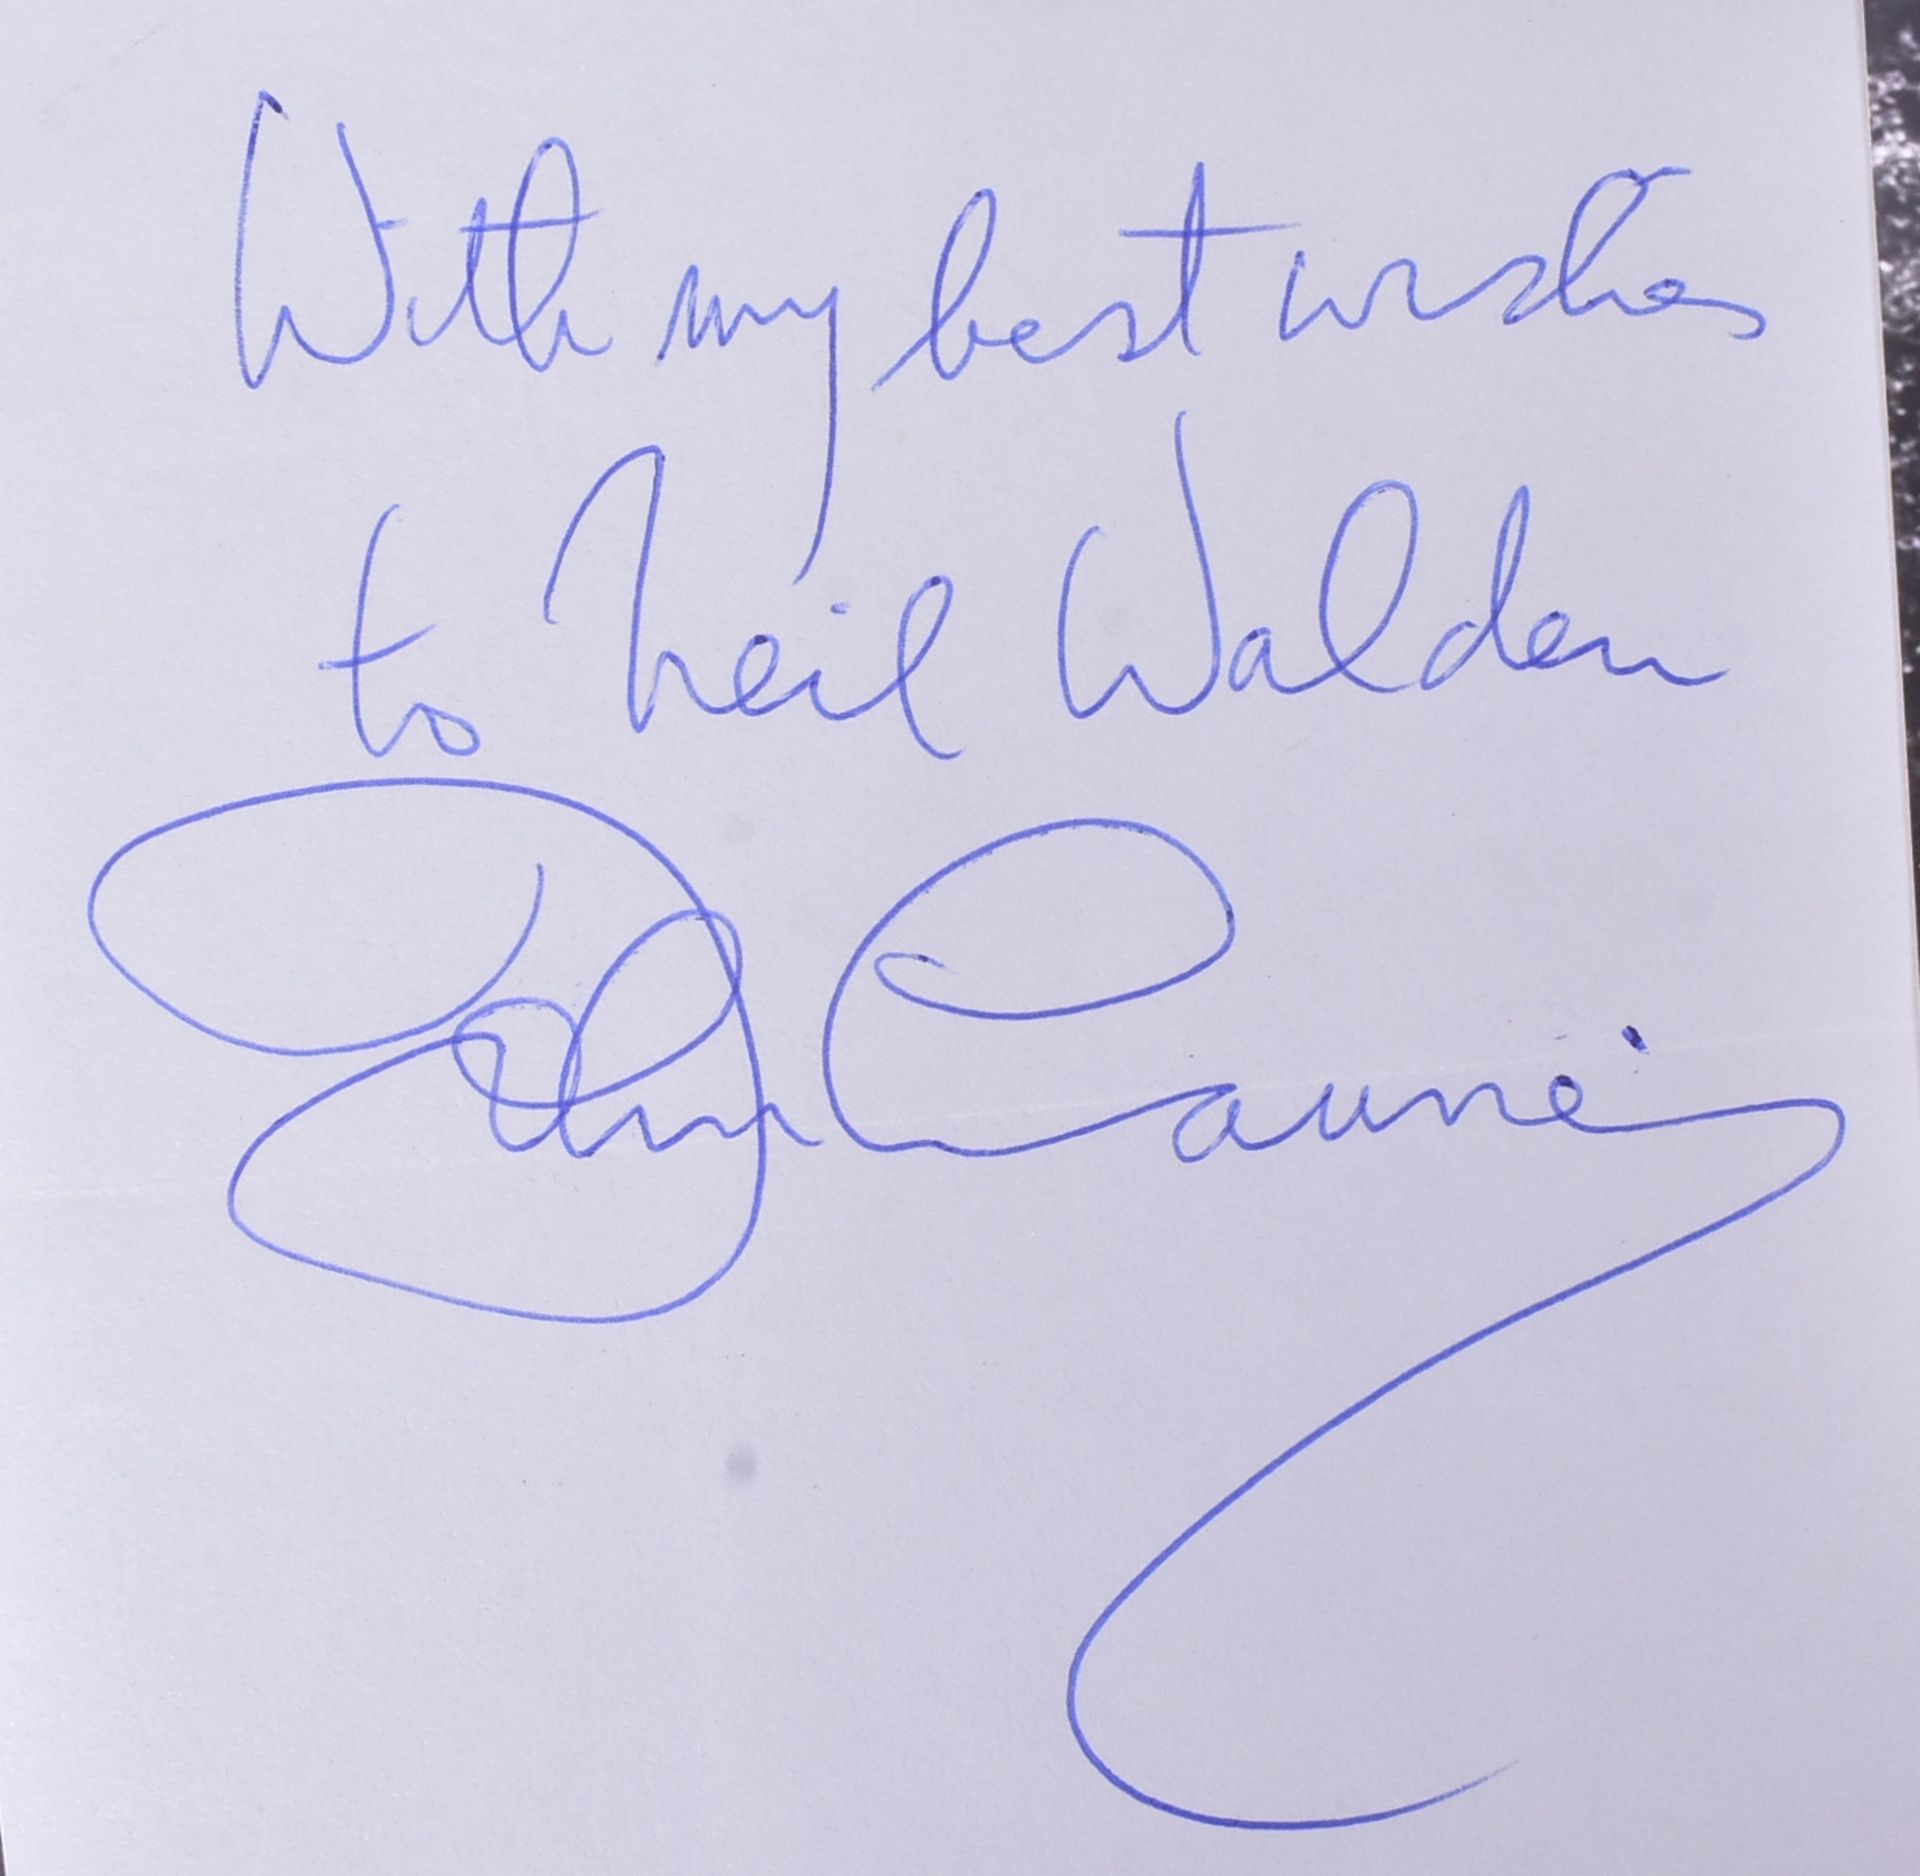 With my best wishes
to Neil Walden
John Caunié